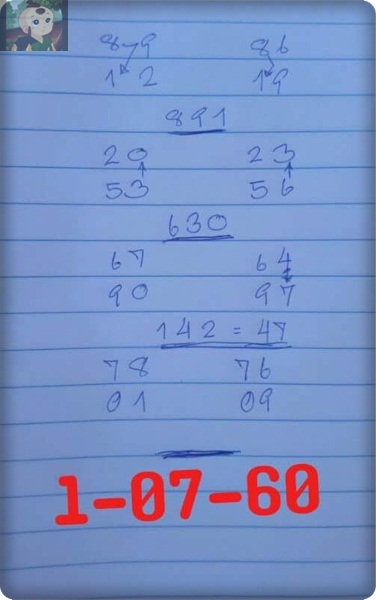 89 86
12 19
891
20 23
53 56
630
67 64
90 97
142 = 47
78 76
01 09
1-07-60